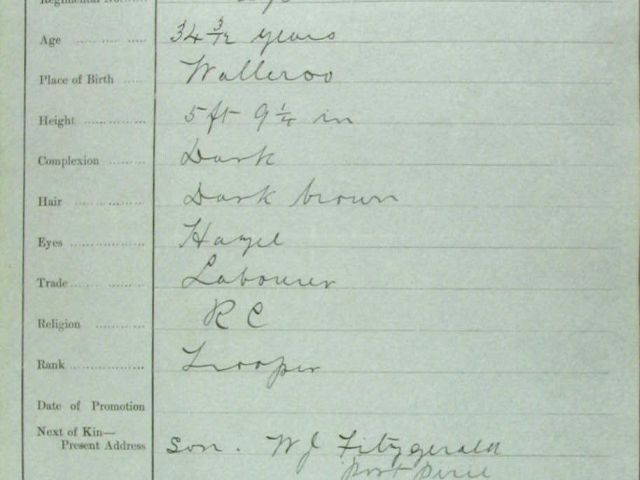 Age 34 3/12 years
Place of Birth Walleroo
Height 5 ft 9 1/4 in
Complexion Dark
Hair Dark brown
Eyes Hazel
Trade Labourer
Religion R C
Rank Trooper
Date of Promotion
Next of Kin—
Present Address Son. W J Fitzgerald
Port Pirie